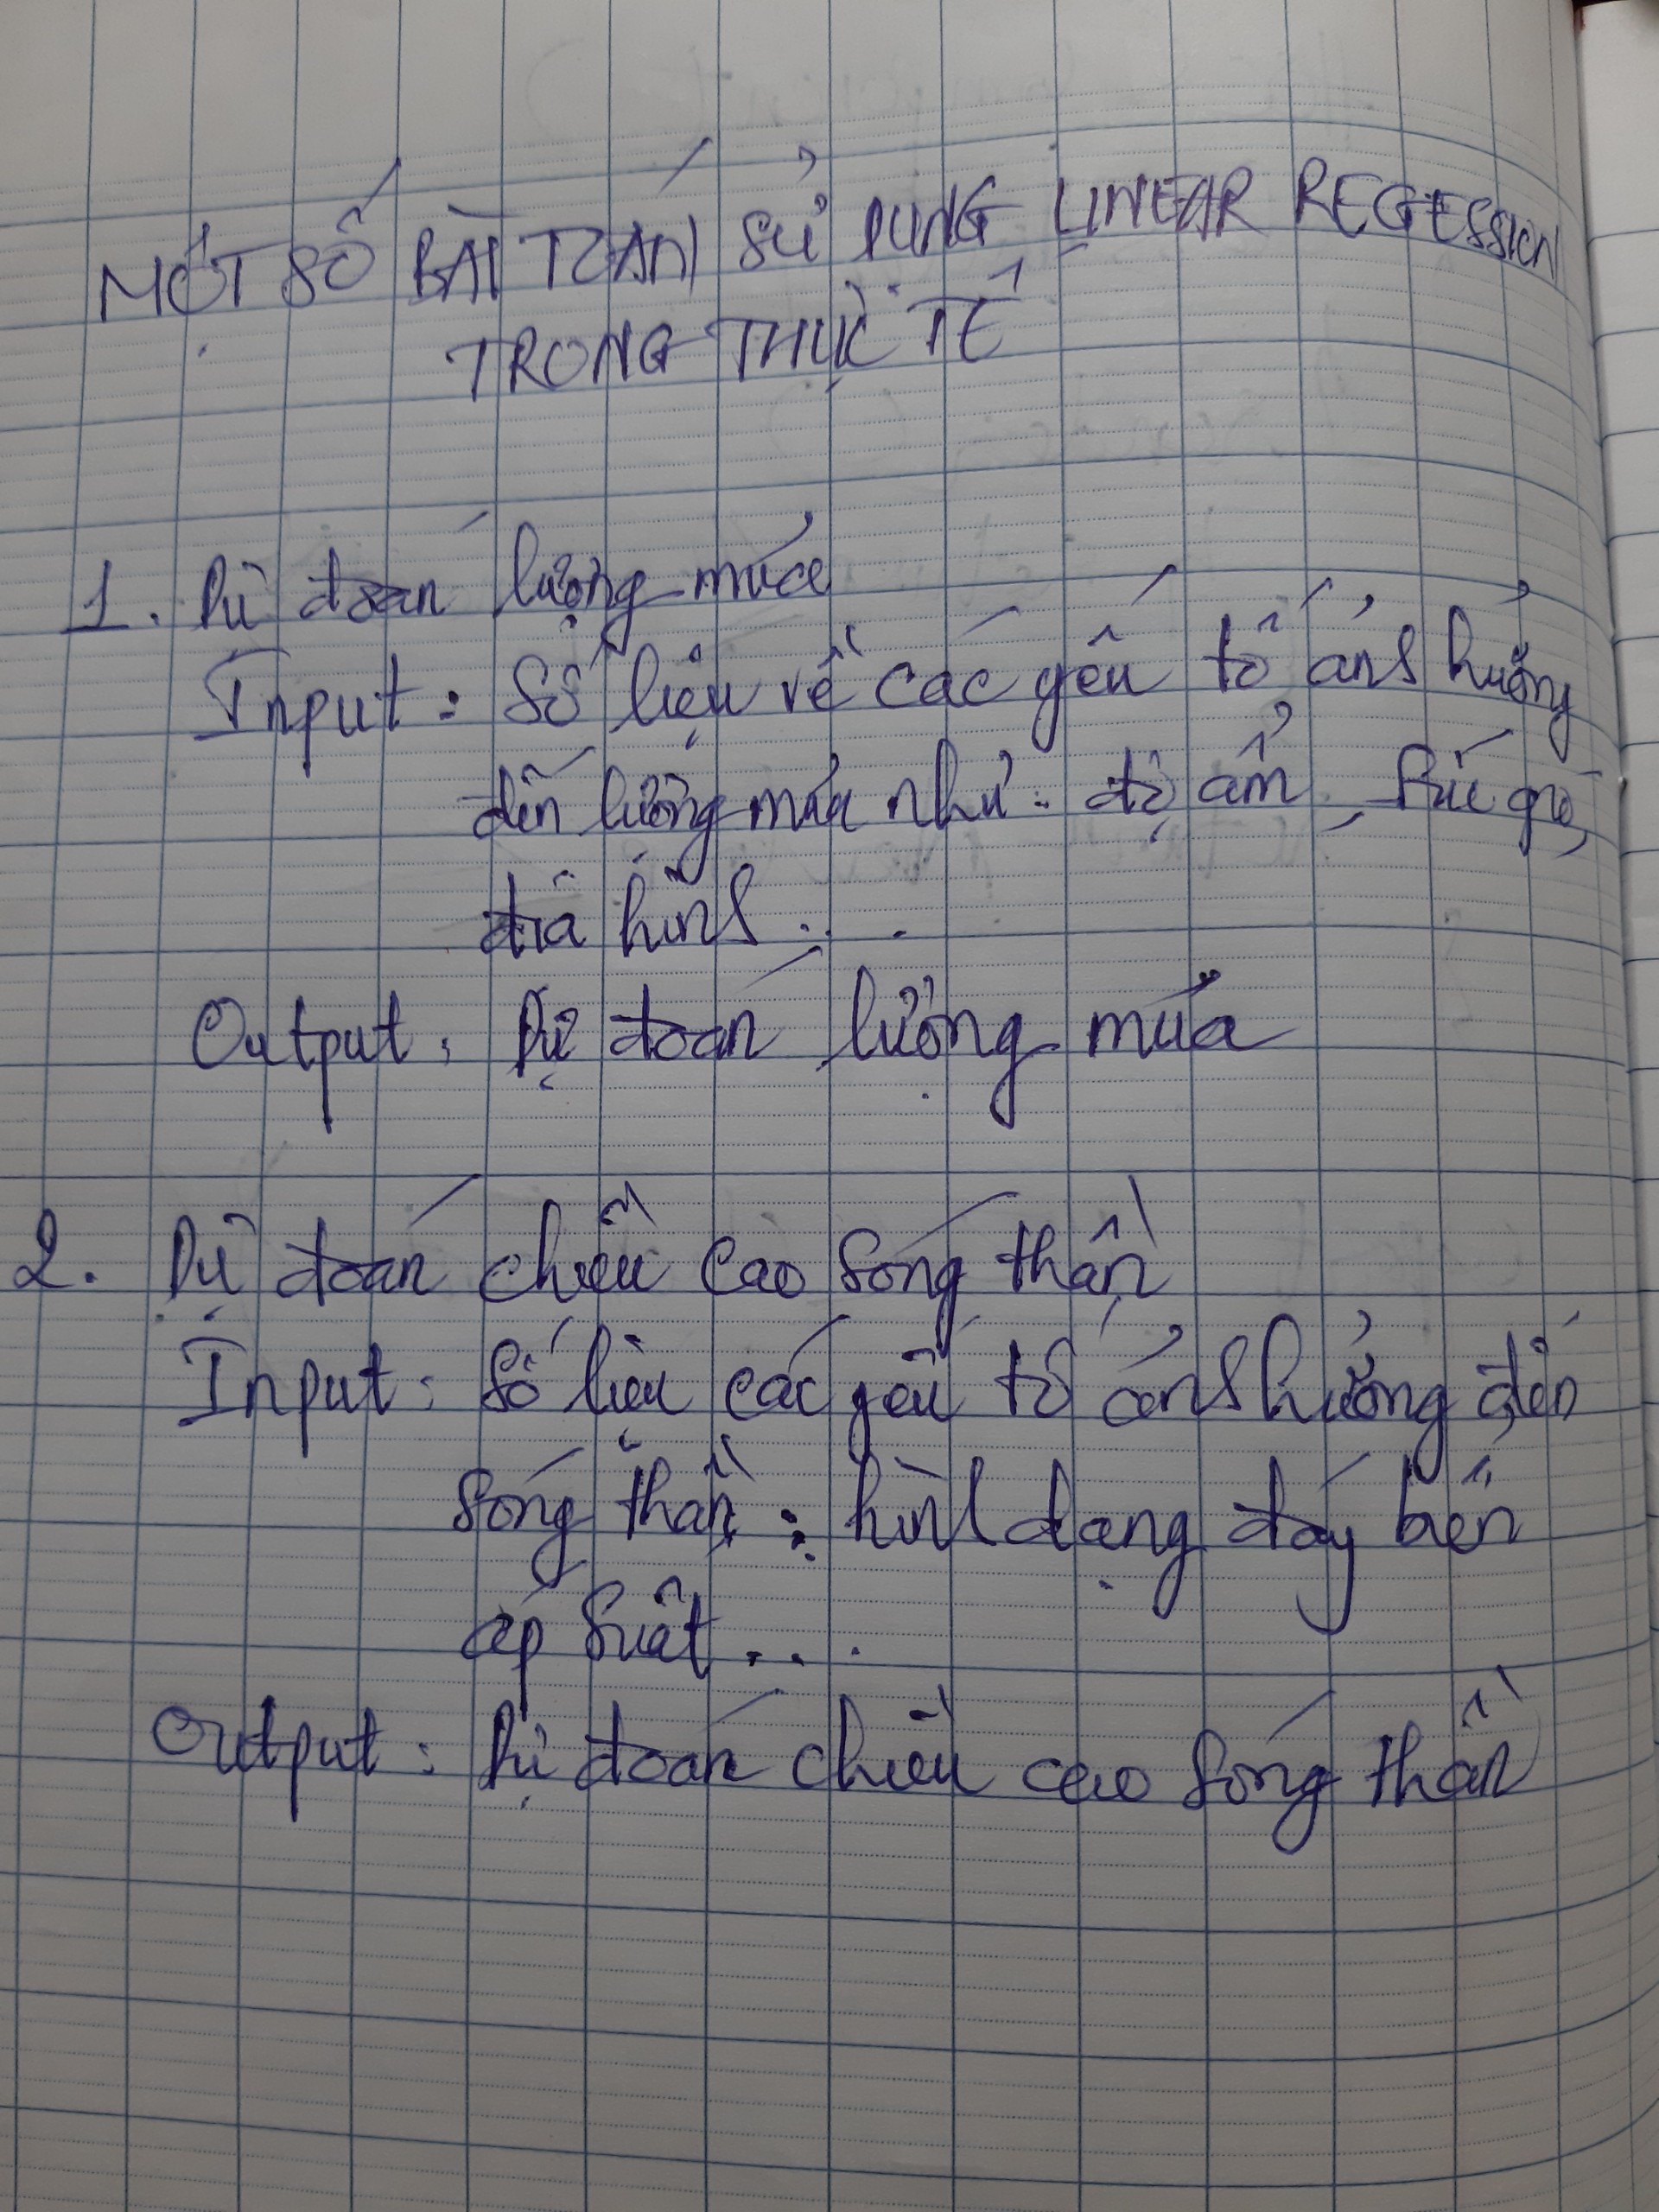 MỘT SỐ BÀI TOÁN SỬ DỤNG LINEAR REGESSION
TRONG THỰC TẾ
1. Dự đoán lượng mưa
Input: Số liệu về các yếu tố ảnh hưởng
đến lượng mưa như: độ ẩm, sức gió,
địa hình...
Output: Dự đoán lượng mưa
2. Dự đoán chiều cao sóng thần
Input: Số liệu các yếu tố ảnh hưởng đến
sóng thần: hình dạng đáy biển
áp suất...
Output: Dự đoán chiều cao sóng thần